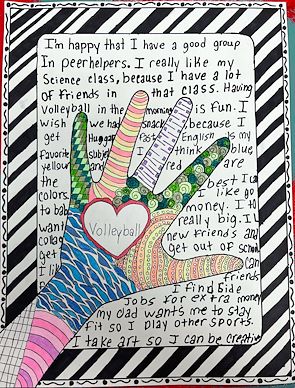 I'm happy that I have a good group
In peerhelpers. I really like my
Science class, because I have a lot
of friends in that class. Having
Volleyball in the morning is fun. I
wish we had snack, because I
get Huggary fast. English is my
favorite subject I think blue
yellow and red are
the colors. best I can
to bab I like go
want money. I to
colla really big. I
get new friends and
I li get out of school
can
friends
I find Side
Jobs for extra money
my dad wants me to stay
fit so I play other sports.
I take art so I can be creative
Volleyball